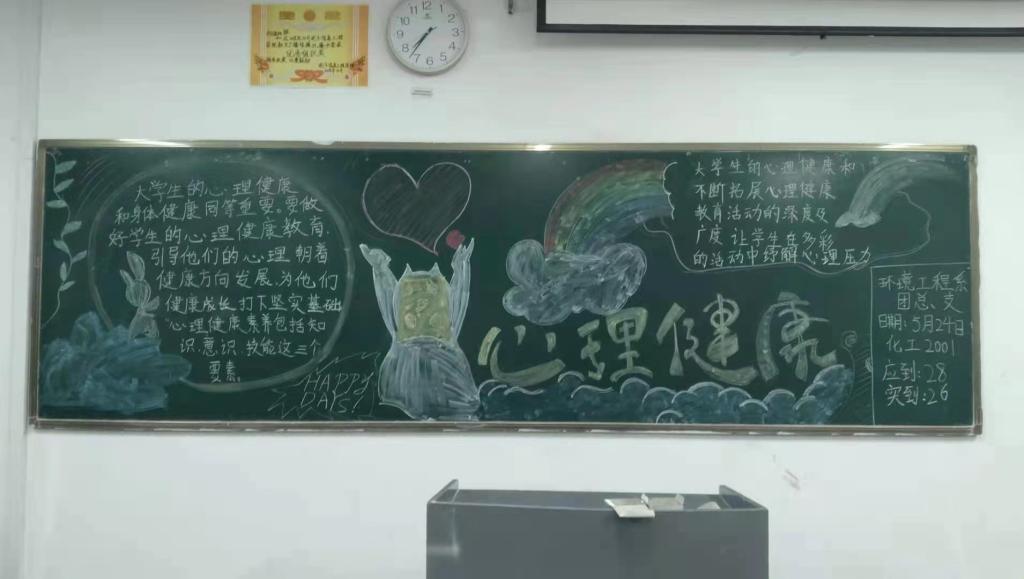 大学生的心理健康
和身体健康同等重要。要做
好学生的心理健康教育,
引导他们的心理朝着
健康方向发展,为他们
健康成长打下坚实基础
心理健康素养包括知
识、意识、技能这三个
要素。
HAPPY
DAYS!
心理健康
大学生的心理健康和
不断拓展心理健康
教育活动的深度及
广度让学生在多彩
的活动中纾解心理压力
环境工程系
团总支
日期:5月24日
化工2001
应到:28
实到:26